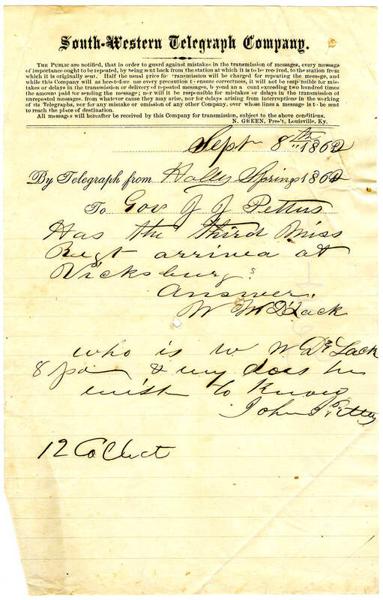 South-Western Telegraph Company.
THE PUBLIC are notified, that in order to guard against mistakes in the transmission of messages, every message
of importance ought to be repeated, by being sent back from the station at which it is to be received, to the station from
which it is originally sent. Half the usual price for transmission will be charged for repeating the message, and
while this Company will as heretofore use every precaution to ensure correctness, it will not be responsible for mis-
takes or delays in the transmission or delivery of repeated messages, beyond an amount exceeding two hundred times
the amount paid for sending the message; nor will it be responsible for mistakes or delays in the transmission of
unrepeated messages, from whatever cause they may arise, nor for delays arising from interruptions in the working
of its Telegraphs, nor for any mistake or omission of any other Company, over whose lines a message is to be sent
to reach the place of destination.
All messages will hereafter be received by this Company for transmission, subject to the above conditions.
N. GREEN, Pres't, Louisville, Ky.
Sept 8th 1862
By Telegraph from Holly Springs 1862
To Gov J J Pettus
Has the third Miss
Regt arrived at
Vicksburg?
Answer.
W
who is W
8 & why does he
wish to know
John J Pettus
12 Collect